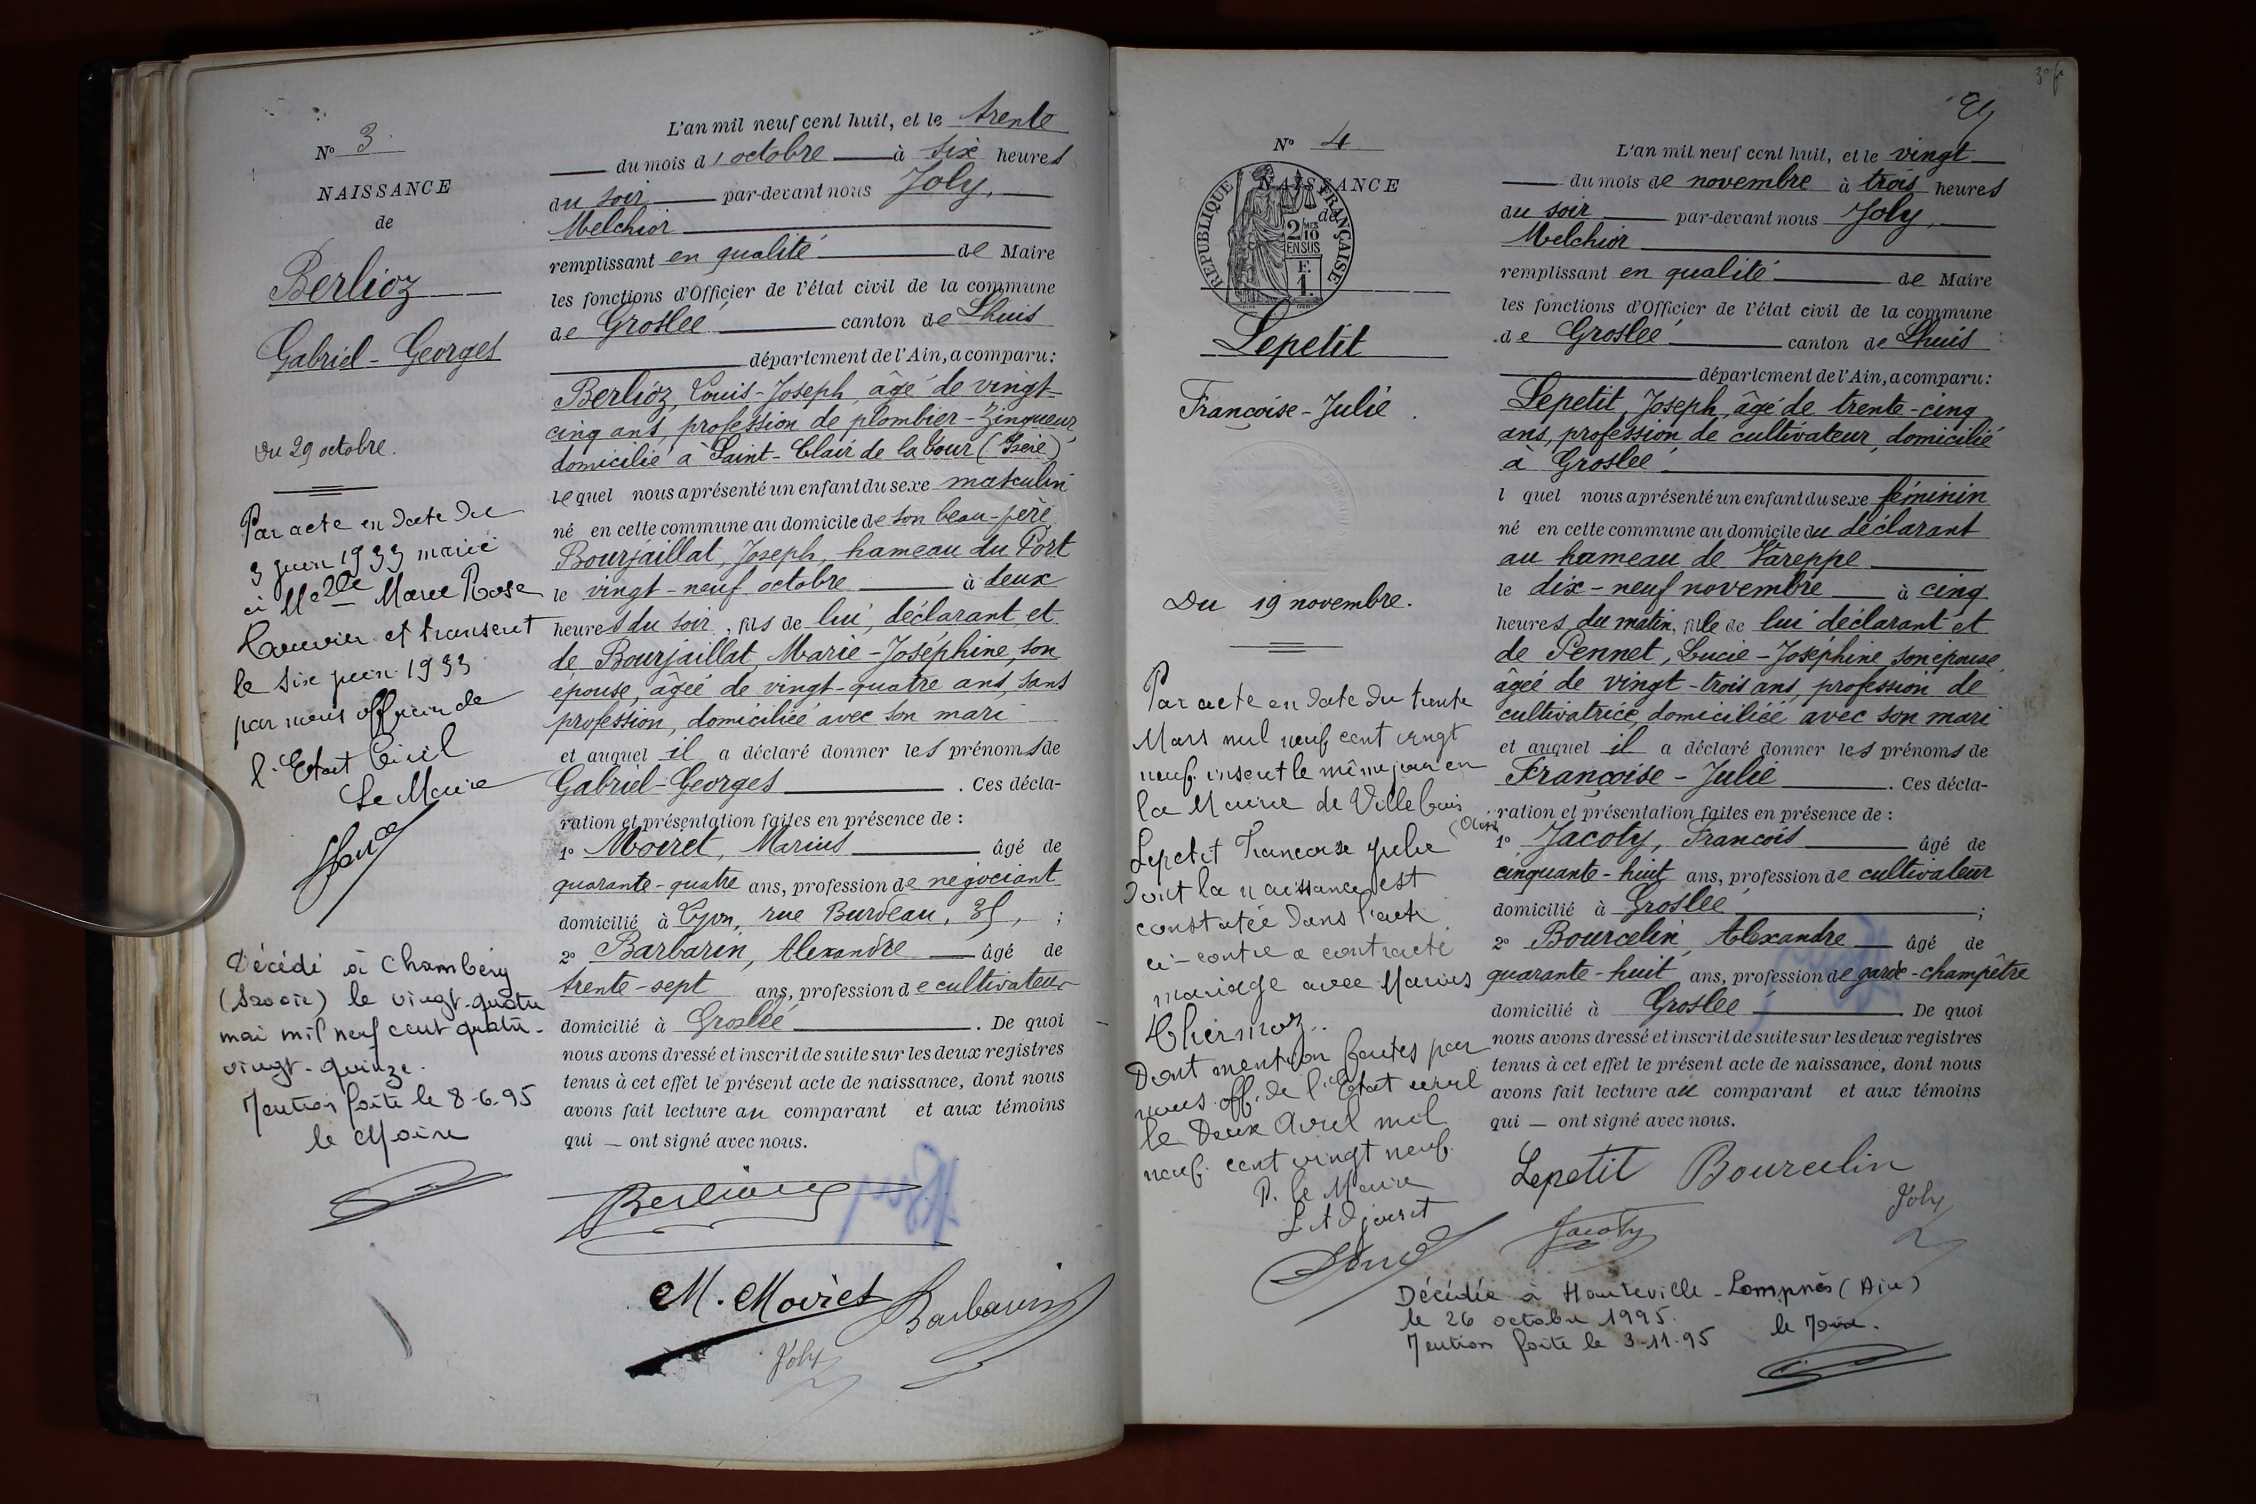 N° 3
NAISSANCE
de
Berlioz
Gabriel-Georges
Du 29 octobre.
Par acte en date du
3 juin 1933 marié
à Melle Marie Rose
et transcrit
le six juin 1933
par nous officier de
l'Etat Civil
Le Maire
Décédé à Chambéry
(Savoie) le vingt-quatre
mai mil neuf cent quatre-
vingt-quinze.
Mention faite le 8-6-95
le Maire
L'an mil neuf cent huit, et le trente
du mois d'octobre à six heures
du soir par-devant nous Joly,
Melchior
remplissant en qualité de Maire
les fonctions d'Officier de l'état civil de la commune
de Groslée canton de Lhuis
département de l'Ain, a comparu:
Berlioz, Louis-Joseph, âgé de vingt
cinq ans, profession de plombier-zingueur
domicilié à Saint-Clair de la Tour (Isère)
lequel nous a présenté un enfant du sexe masculin
né en cette commune au domicile de son beau-père
Bourjaillat, Joseph, hameau du Port
le vingt-neuf octobre à deux
heures du soir, fils de lui, déclarant et
de Bourjaillat, Marie-Joséphine, son
épouse, âgée de vingt-quatre ans, sans
profession, domiciliée avec son mari
et auquel il a déclaré donner les prénoms de
Gabriel-Georges . Ces décla-
ration et présentation faites en présence de :
1° Moiret, Marius âgé de
quarante-quatre ans, profession de négociant
domicilié à Lyon, rue Burdeau, 35, ;
2° Barbarin, Alexandre âgé de
trente-sept ans, profession de cultivateur
domicilié à Groslée . De quoi
nous avons dressé et inscrit de suite sur les deux registres
tenus à cet effet le présent acte de naissance, dont nous
avons fait lecture au comparant et aux témoins
qui — ont signé avec nous.
Berlioz
M. Moiret Barbarin
Joly
N° 4
NAISSANCE
de
REPUBLIQUE FRANÇAISE
2/10 EN SUS
F. 1.
Lepetit
Françoise-Julie
Du 19 novembre.
Par acte en date du trente
Mars mil neuf cent vingt
neuf. inscrit le même jour en
la Mairie de Villebois
(Ain)
Lepetit Françoise Julie
dont la naissance est
constatée dans l'acte
ci-contre a contracté
mariage avec Marius
Chermoz..
Dont mention faites par
nous off. de l'Etat civil
le Deux Avril mil
neuf. cent vingt neuf.
P. le Maire
L'Adjoint
L'an mil neuf cent huit, et le vingt
du mois de novembre à trois heures
du soir par-devant nous Joly,
Melchior
remplissant en qualité de Maire
les fonctions d'Officier de l'état civil de la commune
de Groslée canton de Lhuis
département de l'Ain, a comparu:
Lepetit, Joseph, âgé de trente-cinq
ans, profession de cultivateur, domicilié
à Groslée
l quel nous a présenté un enfant du sexe féminin
né en cette commune au domicile du déclarant
au hameau de Vareppe
le dix-neuf novembre à cinq
heures du matin, fille de lui déclarant et
de Pennet, Lucie-Joséphine, son épouse,
âgée de vingt-trois ans, profession de
cultivatrice, domiciliée avec son mari
et auquel il a déclaré donner les prénoms de
Françoise-Julie . Ces décla-
ration et présentation faites en présence de :
1° Jacoty, François âgé de
cinquante-huit ans, profession de cultivateur
domicilié à Groslée ;
2° Bourcelin Alexandre âgé de
quarante-huit ans, profession de garde-champêtre
domicilié à Groslée . De quoi
nous avons dressé et inscrit de suite sur les deux registres
tenus à cet effet le présent acte de naissance, dont nous
avons fait lecture au comparant et aux témoins
qui — ont signé avec nous.
Lepetit Bourcelin
Jacoty Joly
Décédée à Hauteville-Lompnès (Ain)
le 26 octobre 1995.
Mention faite le 3-11-95 le Maire.